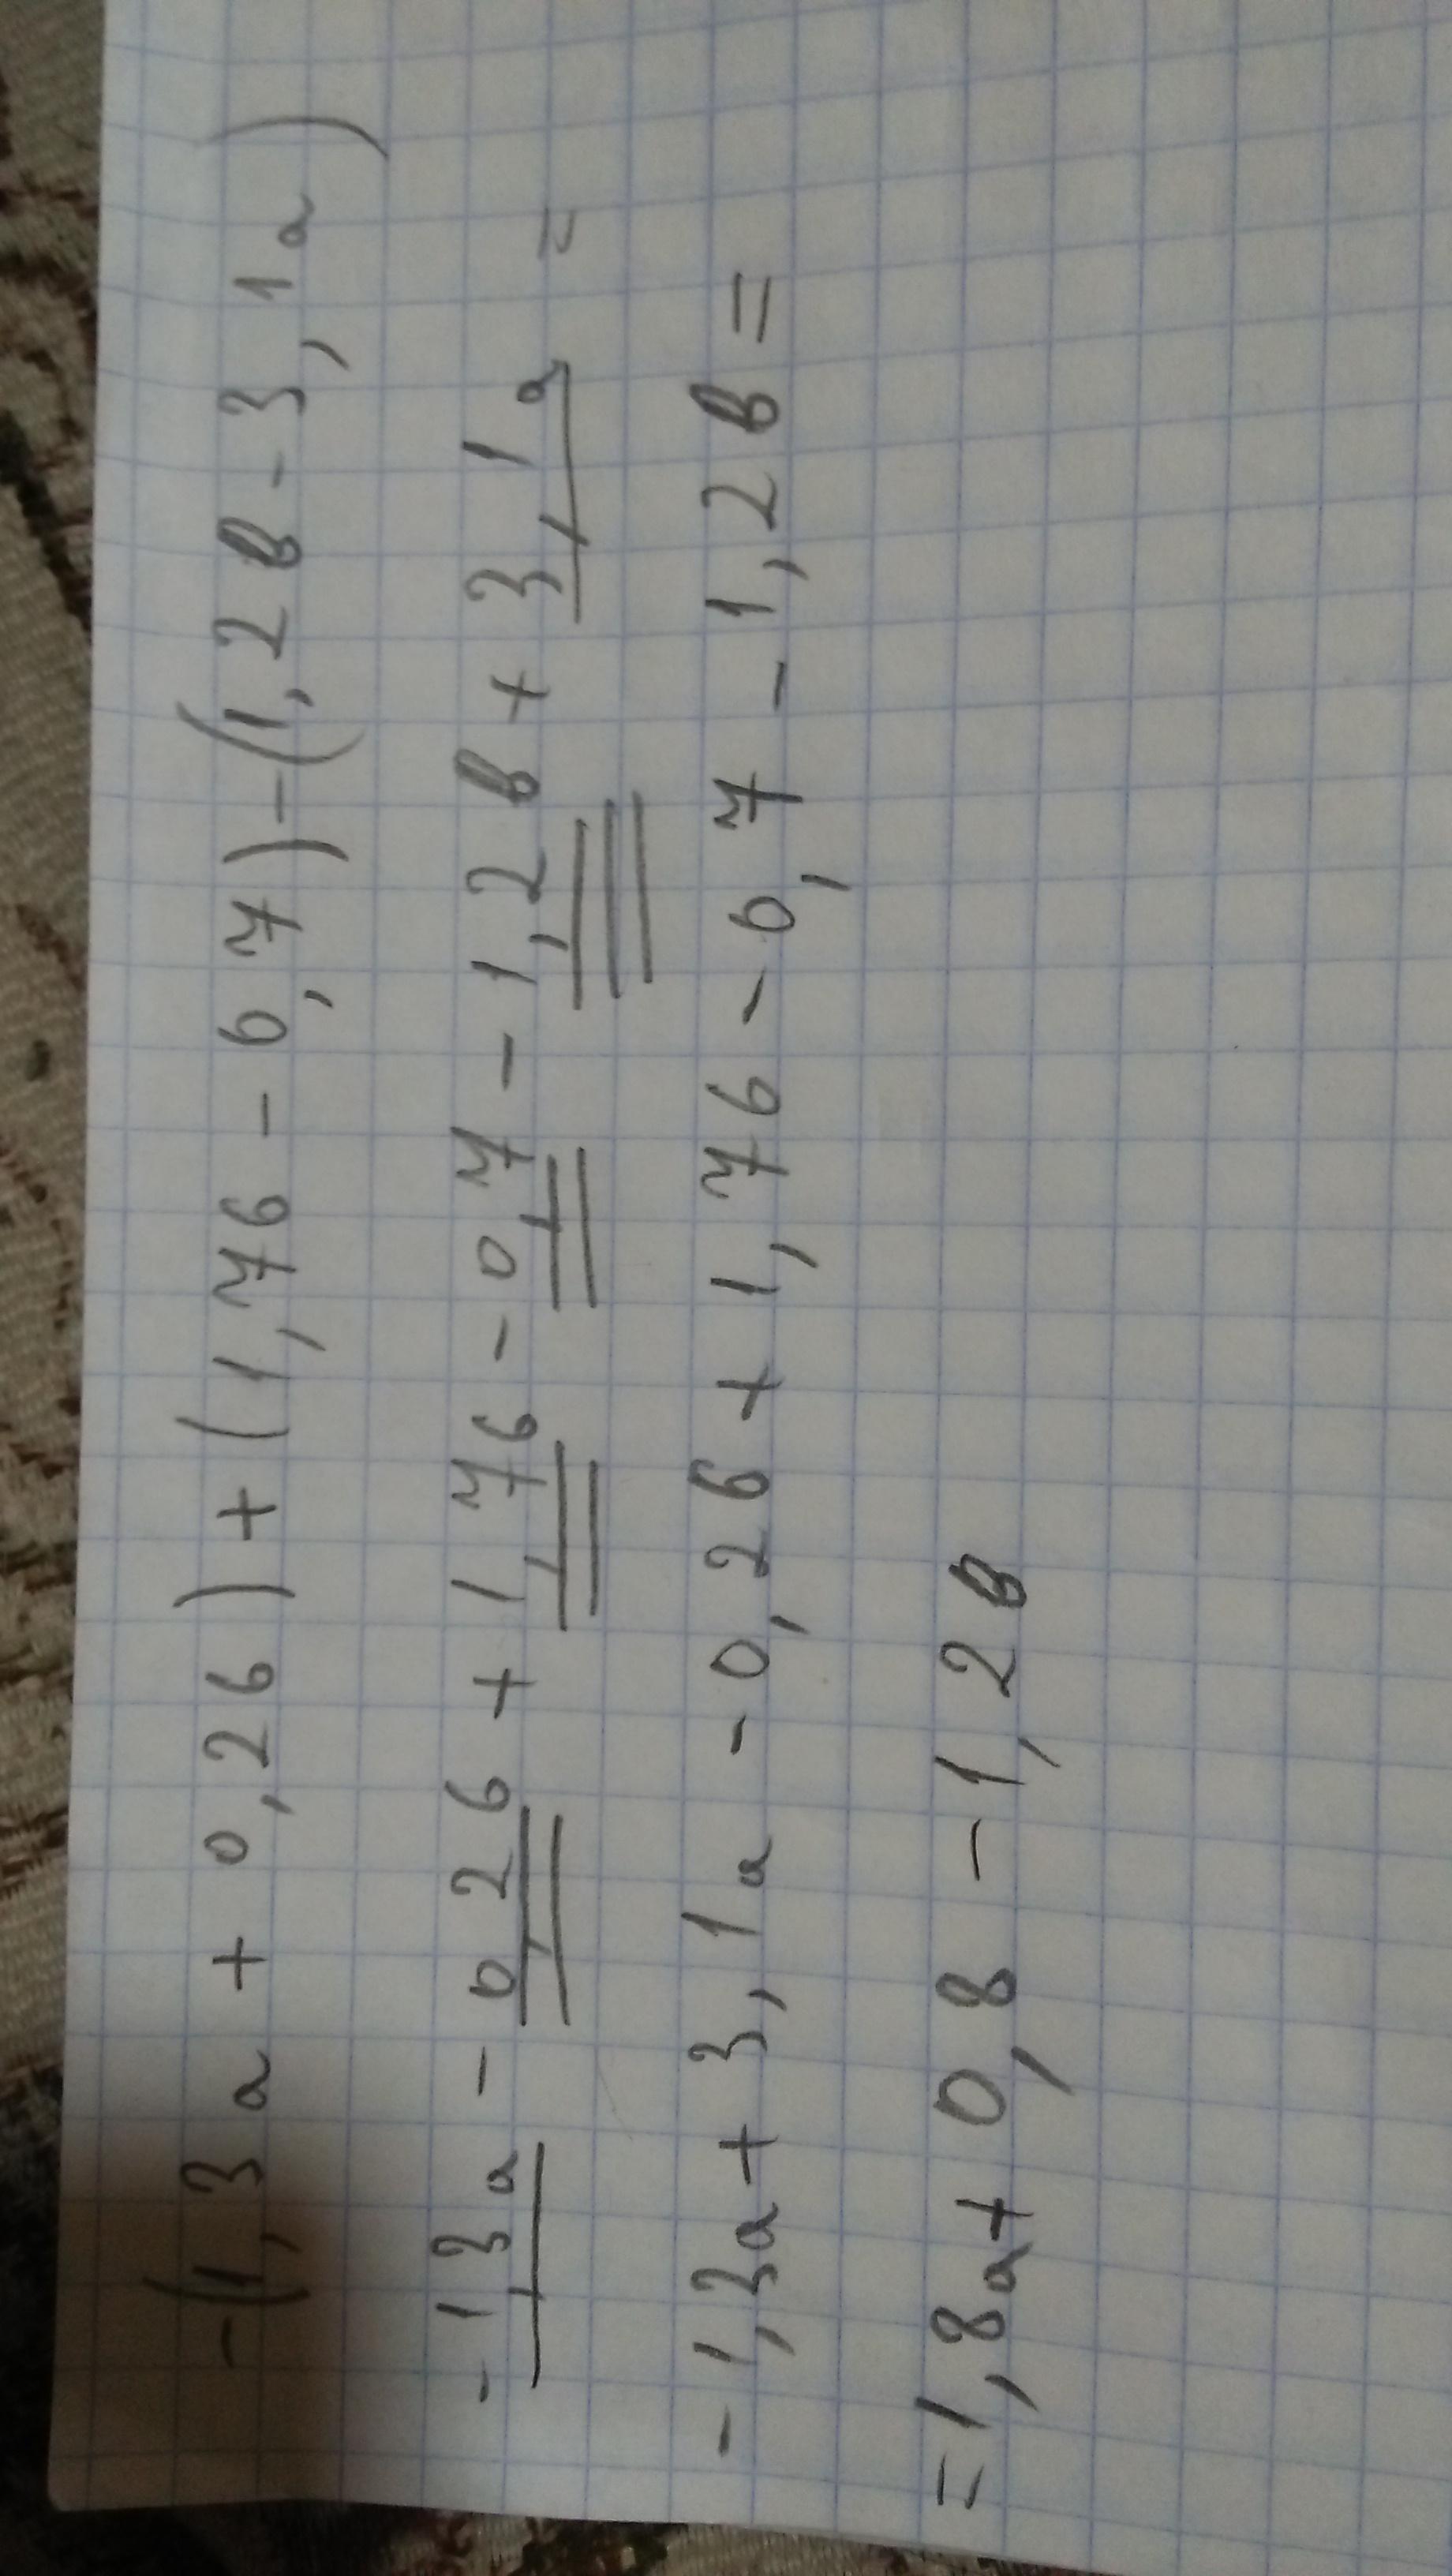 -(1,3a+0,26)+(1,76-0,7)-(1,2в-3,1a)
-1,3a-0,26+1,76-0,7-1,2в+3,1a=
-1,3a+3,1a-0,26+1,76-0,7-1,2в=
=1,8a+0,8-1,2в